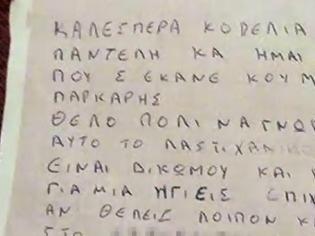 ΚΑΛΕΣΠΕΡΑ ΚΟΠΕΛΙΑ
ΠΑΝΤΕΛΗ ΚΑ ΗΜΑΙ
ΠΟΥ Σ ΕΚΑΝΕ ΚΟΥΜ
ΠΑΡΚΑΡΗΣ
ΘΕΛΟ ΠΟΛΙ ΝΑ ΓΝΩΡ
ΑΥΤΟ ΤΟ ΛΑΣΤΙΧΑΝΙΚΟ
ΕΙΝΑΙ ΔΙΚΩΜΟΥ ΚΑΙ
ΓΙΑ ΜΙΑ ΗΓΙΕΙΣ ΕΠΙΧ
ΑΝ ΘΕΛΕΙΣ ΛΟΙΠΟΝ Κ
ΣΤΟ